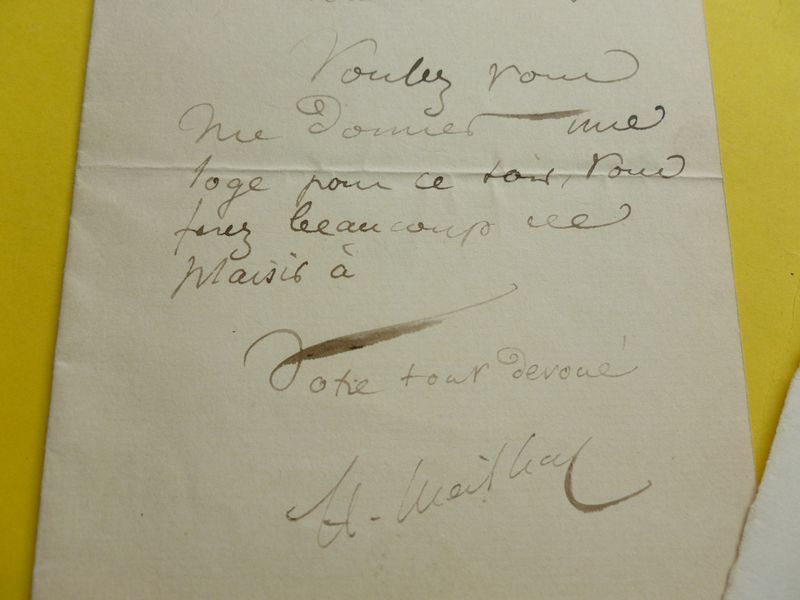 Voulez vous
me donner une
loge pour ce soir, vous
ferez beaucoup de
plaisir à
Votre tout devoué
H. Meilhac